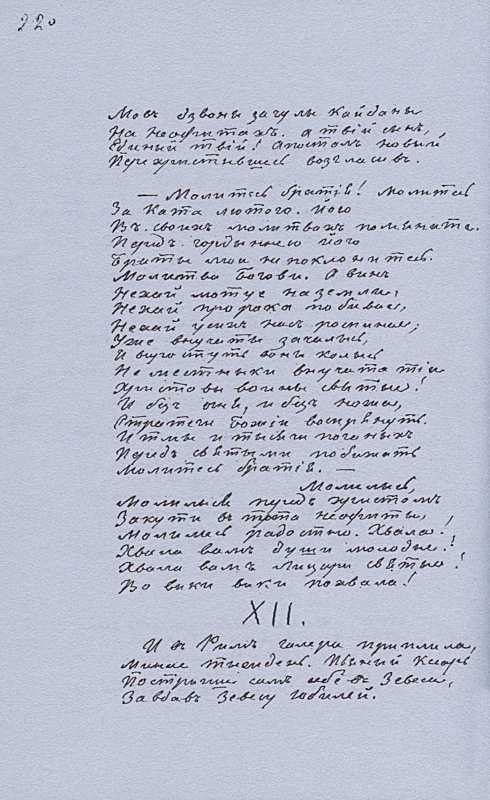 220
Мовъ дзвоны загулы кайданы
На Неофитахъ. а твій сынъ,
Единый твій! Апостолъ новый,
Перехрыстывшысь возгласывъ.
— Молитесь братія! молитесь
За ката лютого. Його
Въ своихъ молитвахъ помъяните.
Передъ гордынею його
Браты мои не поклонитесь.
Молитва Богови. А винъ
Нехай лютує на земли,
Нехай пророка побиває,
Нехай усихъ насъ роспинає;
Уже внучаты зачалысь,
И выростутъ воны колысь
Не местныки внучата тіи
Христовы воины святыє!
И безъ огня, и безъ ножа,
Стратеги Божіи воспрянутъ.
И тмы и тысячи поганыхъ
Передъ святыми побижать
Молитесь братія. —
Молылысь,
Молилысь передъ хрестомъ
Закути въ пута неофиты,
Молилысь радостно. Хвала!
Хвала вамъ души молодыє!
Хвала вамъ лицари святыє!
Во вики вики похвала!
XII.
И въ Римъ галера приплила,
Минає тыждень. Пьяный Кесарь
Постригши самъ себе въ Зевеса,
Завдавъ Зевесу юбилей.